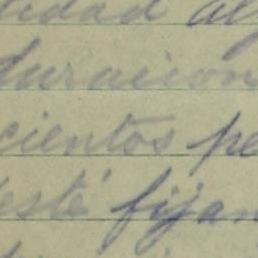 edad al
duracion
cientos pe
esté fijan